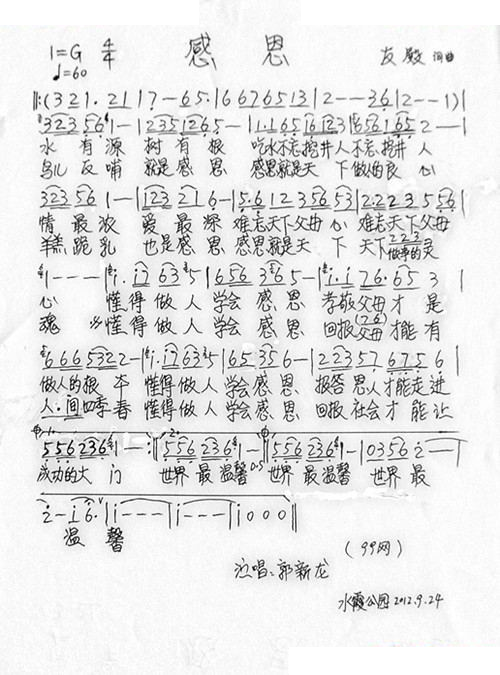 1=G 4/4 感恩 友殿 词曲
♩=60
‖:(3 2 1. 21 | 7 — 6 5. | 6 6 7 6 5 1 3 | 2 - - 3 6 | 2 - - 1) |
3 2 3 5 6 1 - | 2 3 5 1 2 6 5 - | 1. 1 6 5 1 6 1 2 3 | 5 6 1 6 5 2 — |
水有源 树有根 吃水不忘挖井人 不忘挖井人
鸟儿反哺 就是感恩 感恩就是天下做人的良心
3 2 3 5 6 1 - | 1 2 3 2 1 6 - | 5. 6 1 2 3 5 6 5 3 | 2 2 2 3 5 5 6 |
情最浓 爱最深 难忘天下父母心 难忘天下父母
羊羔跪乳 也是感恩 感恩就是天下 天下做事的灵
1 - - - | 1. 1 6 3 5 - | 6 5 6 3 6 5 - | 1. 1 7 6. 6 5 3 |
心 懂得做人 学会感恩 孝敬父母才是
魂 懂得做人 学会感恩 回报父母才能有
6 6 6 5 3 2 2 - | 1. 1 7 6 3 5 | 6 5 3 5 6 - | 2 2 3 5 7 6 7 5 6 |
做人的根本 懂得做人 学会感恩 报答恩人才能走进
人间四季春 懂得做人 学会感恩 回报社会才能让
5 5 6 2 3 6 1 - :‖ 5 5 6 2 3 6 1 | 5 5 6 2 3 6 1 - | 0 3 5 6 2 — |
成功的大门 世界最温馨 世界最温馨 世界最
2 - 1 6. | 1 - - - | 1 - - - | 1 0 0 0 ‖
温馨
(99网)
演唱:郭新龙
水霞公园2012.9.24